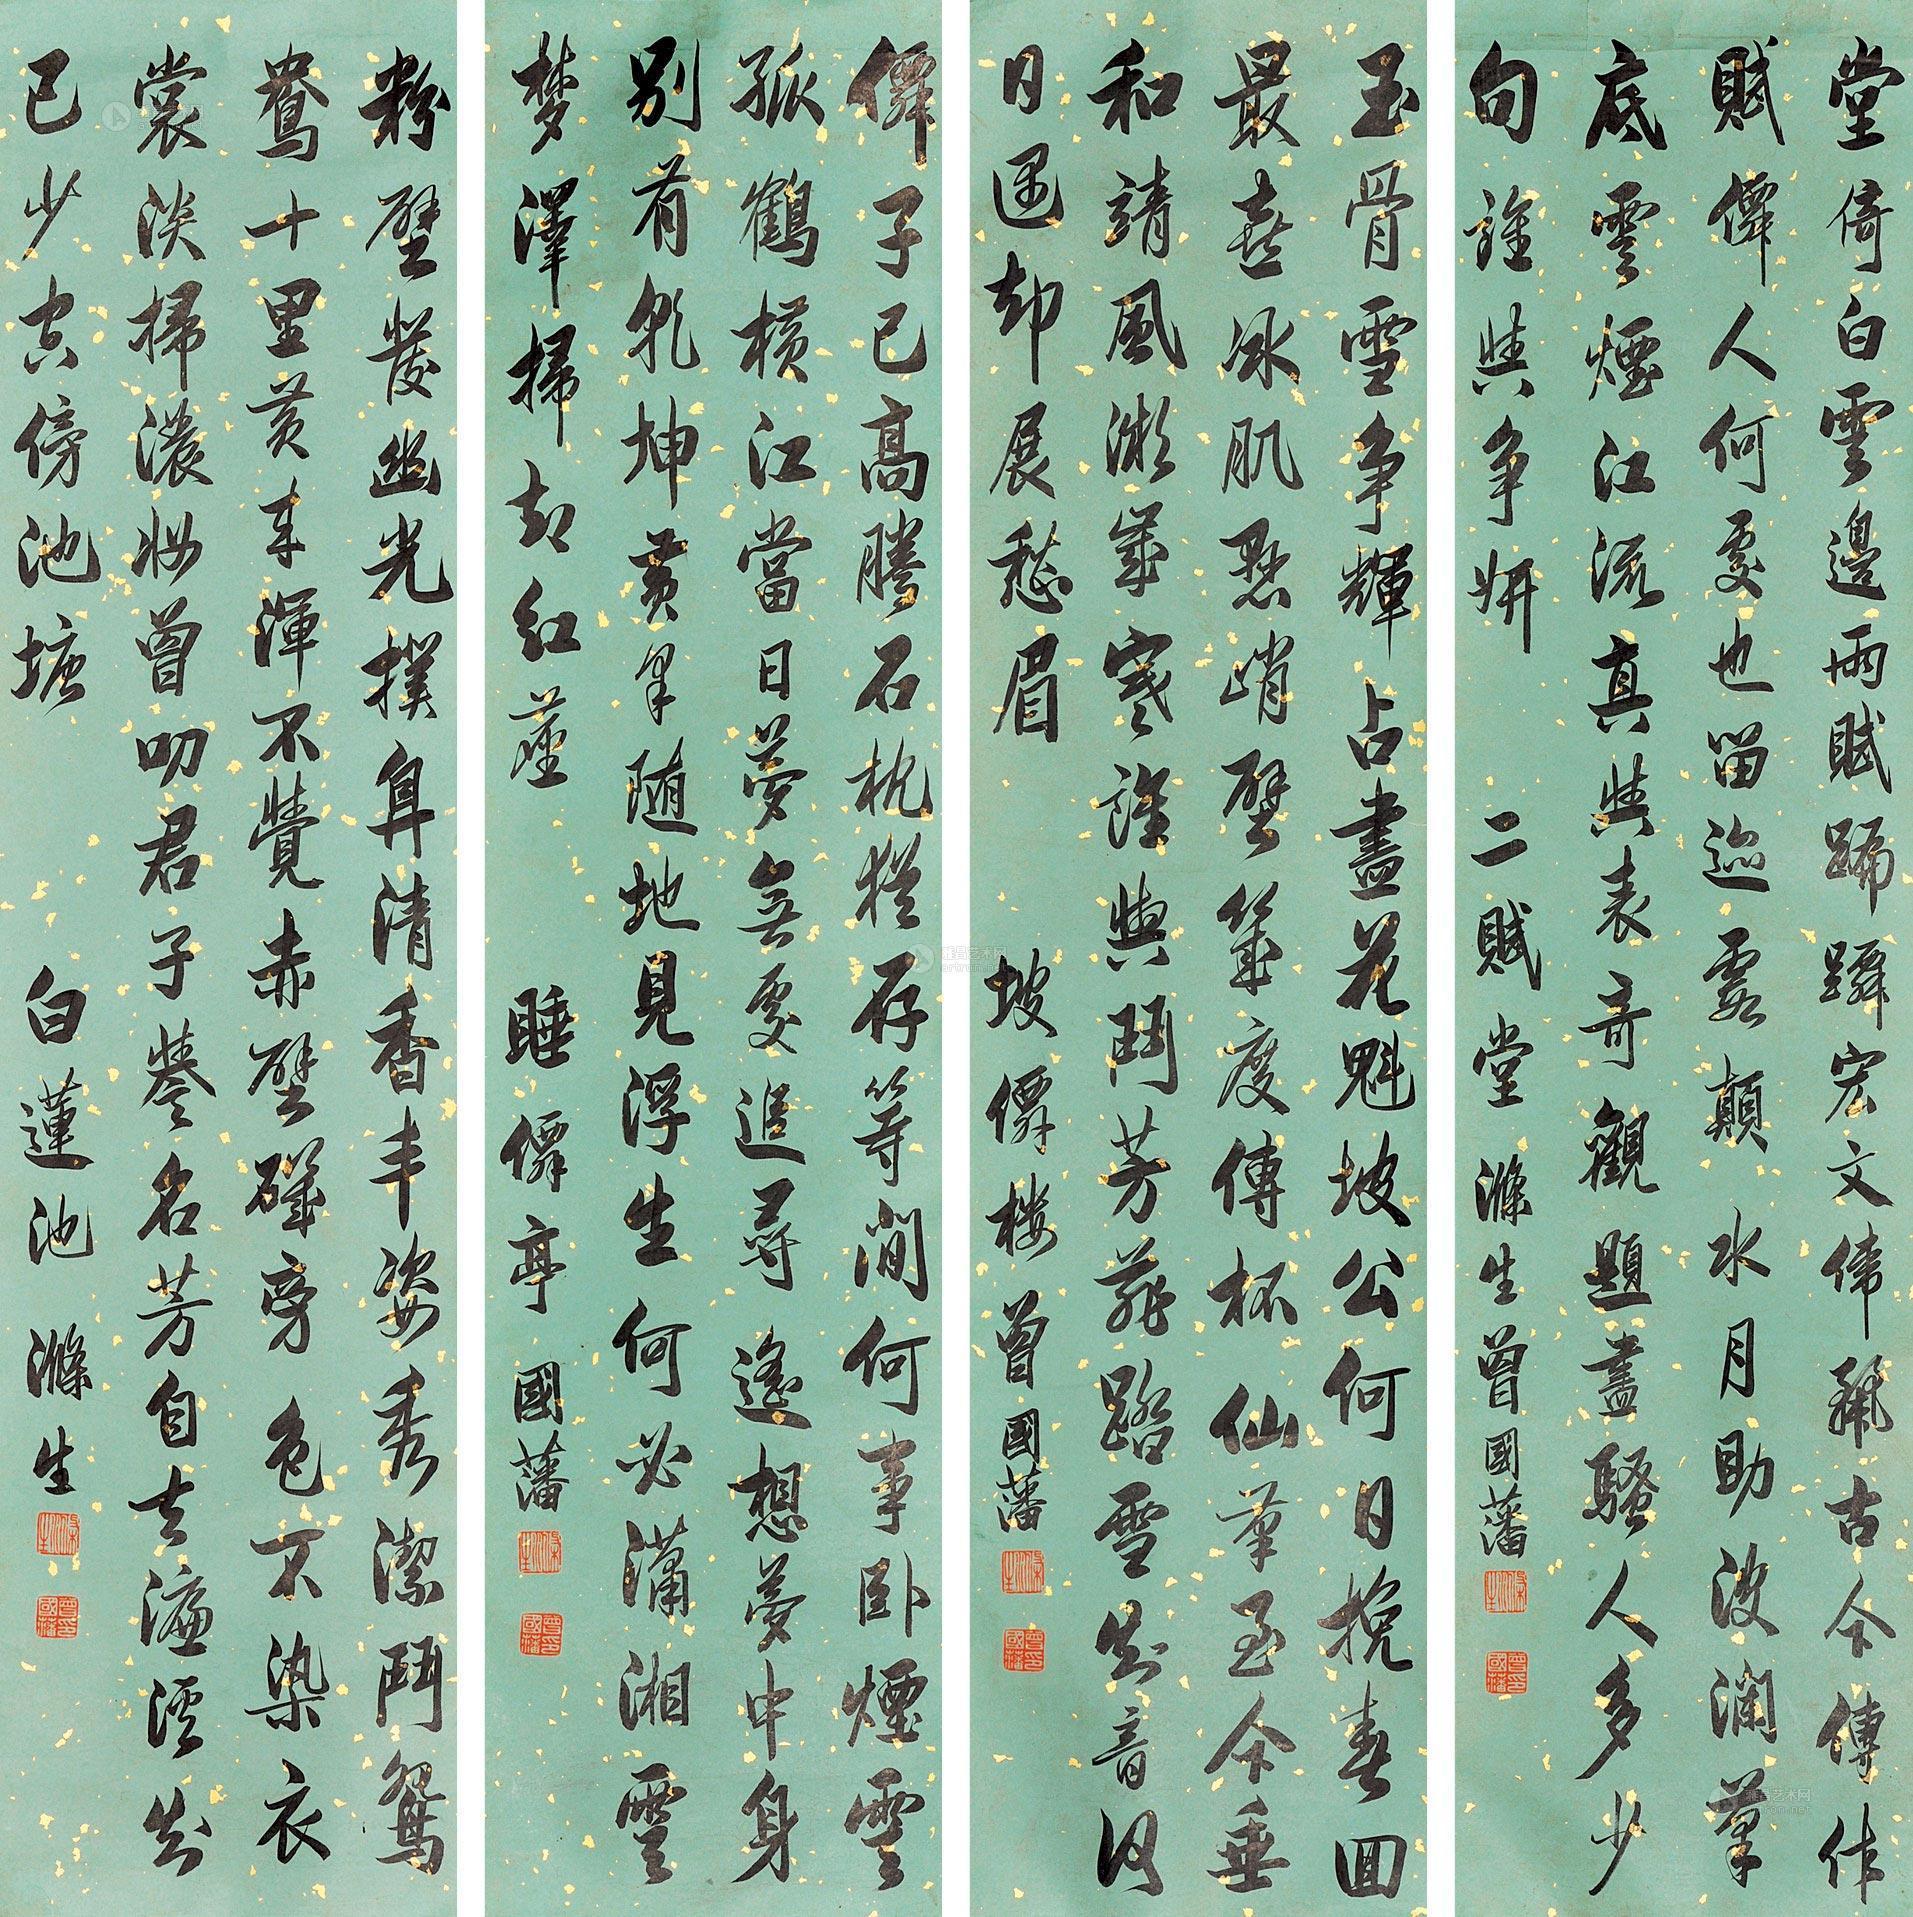 堂倚白雲邊兩賦蹁躚宏文偉藻古今傳作
賦僊人何處也留迹雲顛水月助波瀾筆
底雲煙江流真與表奇觀題盡騷人多少
句誰與爭妍
二賦堂滌生曾國藩
玉骨雪爭輝占盡花魁坡公何日挽春回
最喜冰肌懸峭壁幾度傳杯仙筆至今垂
和靖風澈幾寒誰與鬥芳菲踏雪知音何
日遇却展愁眉
坡僊樓曾國藩
僊子已高騰石枕猶存等閒何事卧煙雲
孤鶴橫江當日夢無處追尋遙想夢中身
別有乾坤黃粱隨地見浮生何必瀟湘雲
梦澤掃却紅塵
睡僊亭國藩
粉壁發幽光撲鼻清香丰姿秀潔鬥鴛
鴦十里黃車渾不覺赤壁磯旁色不染衣
裳淡掃濃妝曾叨君子譽名芳自去濂溪知
已少空傍池塘
白蓮池滌生
滌生
曾國藩印